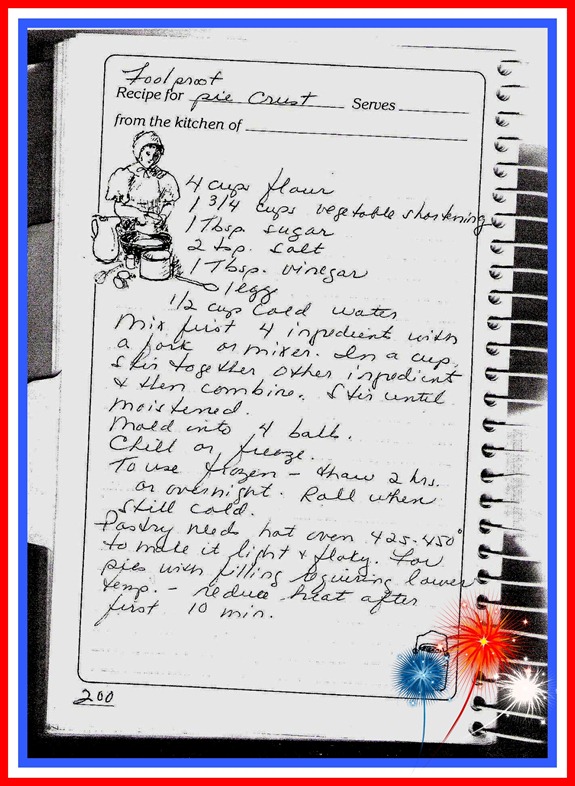 Foolproof
Recipe for pie Crust Serves
from the kitchen of
4 cups flour
1 3/4 cups vegetable shortening
1 Tbsp sugar
2 tsp. salt
1 Tbsp. vinegar
1 egg
1/2 cup Cold water
Mix first 4 ingredient with
a fork or mixer. In a cup
stir together other ingredient
& then combine. Stir until
moistened.
Mold into 4 balls.
Chill or freeze.
To use frozen - thaw 2 hrs.
or overnight. Roll when
still cold.
Pastry needs hot oven 425-450°
to make it light & flaky. For
pies with filling requiring lower
temp. - reduce heat after
first 10 min.
200